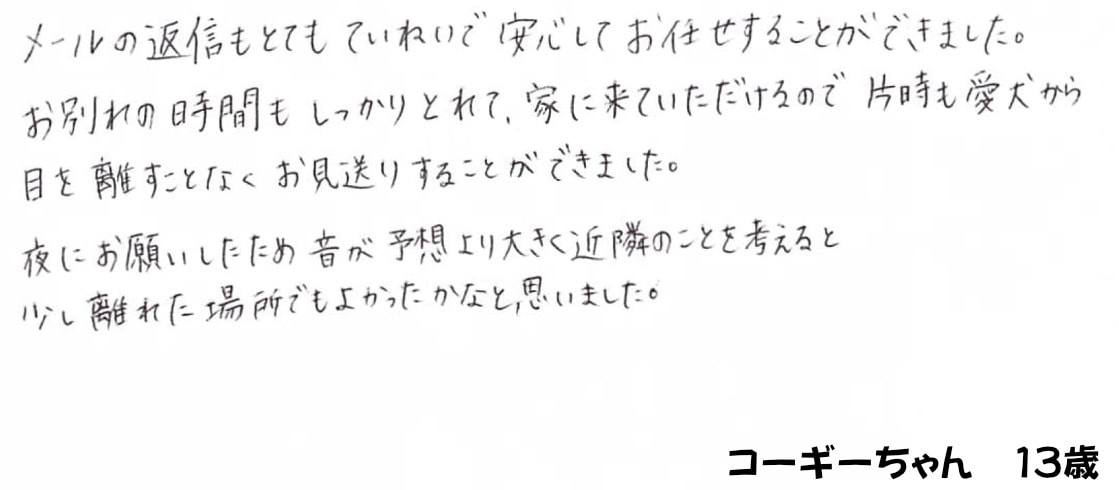 メールの返信もとてもていねいで安心してお任せすることができました。
お別れの時間もしっかりとれて、家に来ていただけるので片時も愛犬から
目を離すことなくお見送りすることができました。
夜にお願いしたため音が予想より大きく近隣のことを考えると
少し離れた場所でもよかったかなと思いました。
コーギーちゃん　13歳